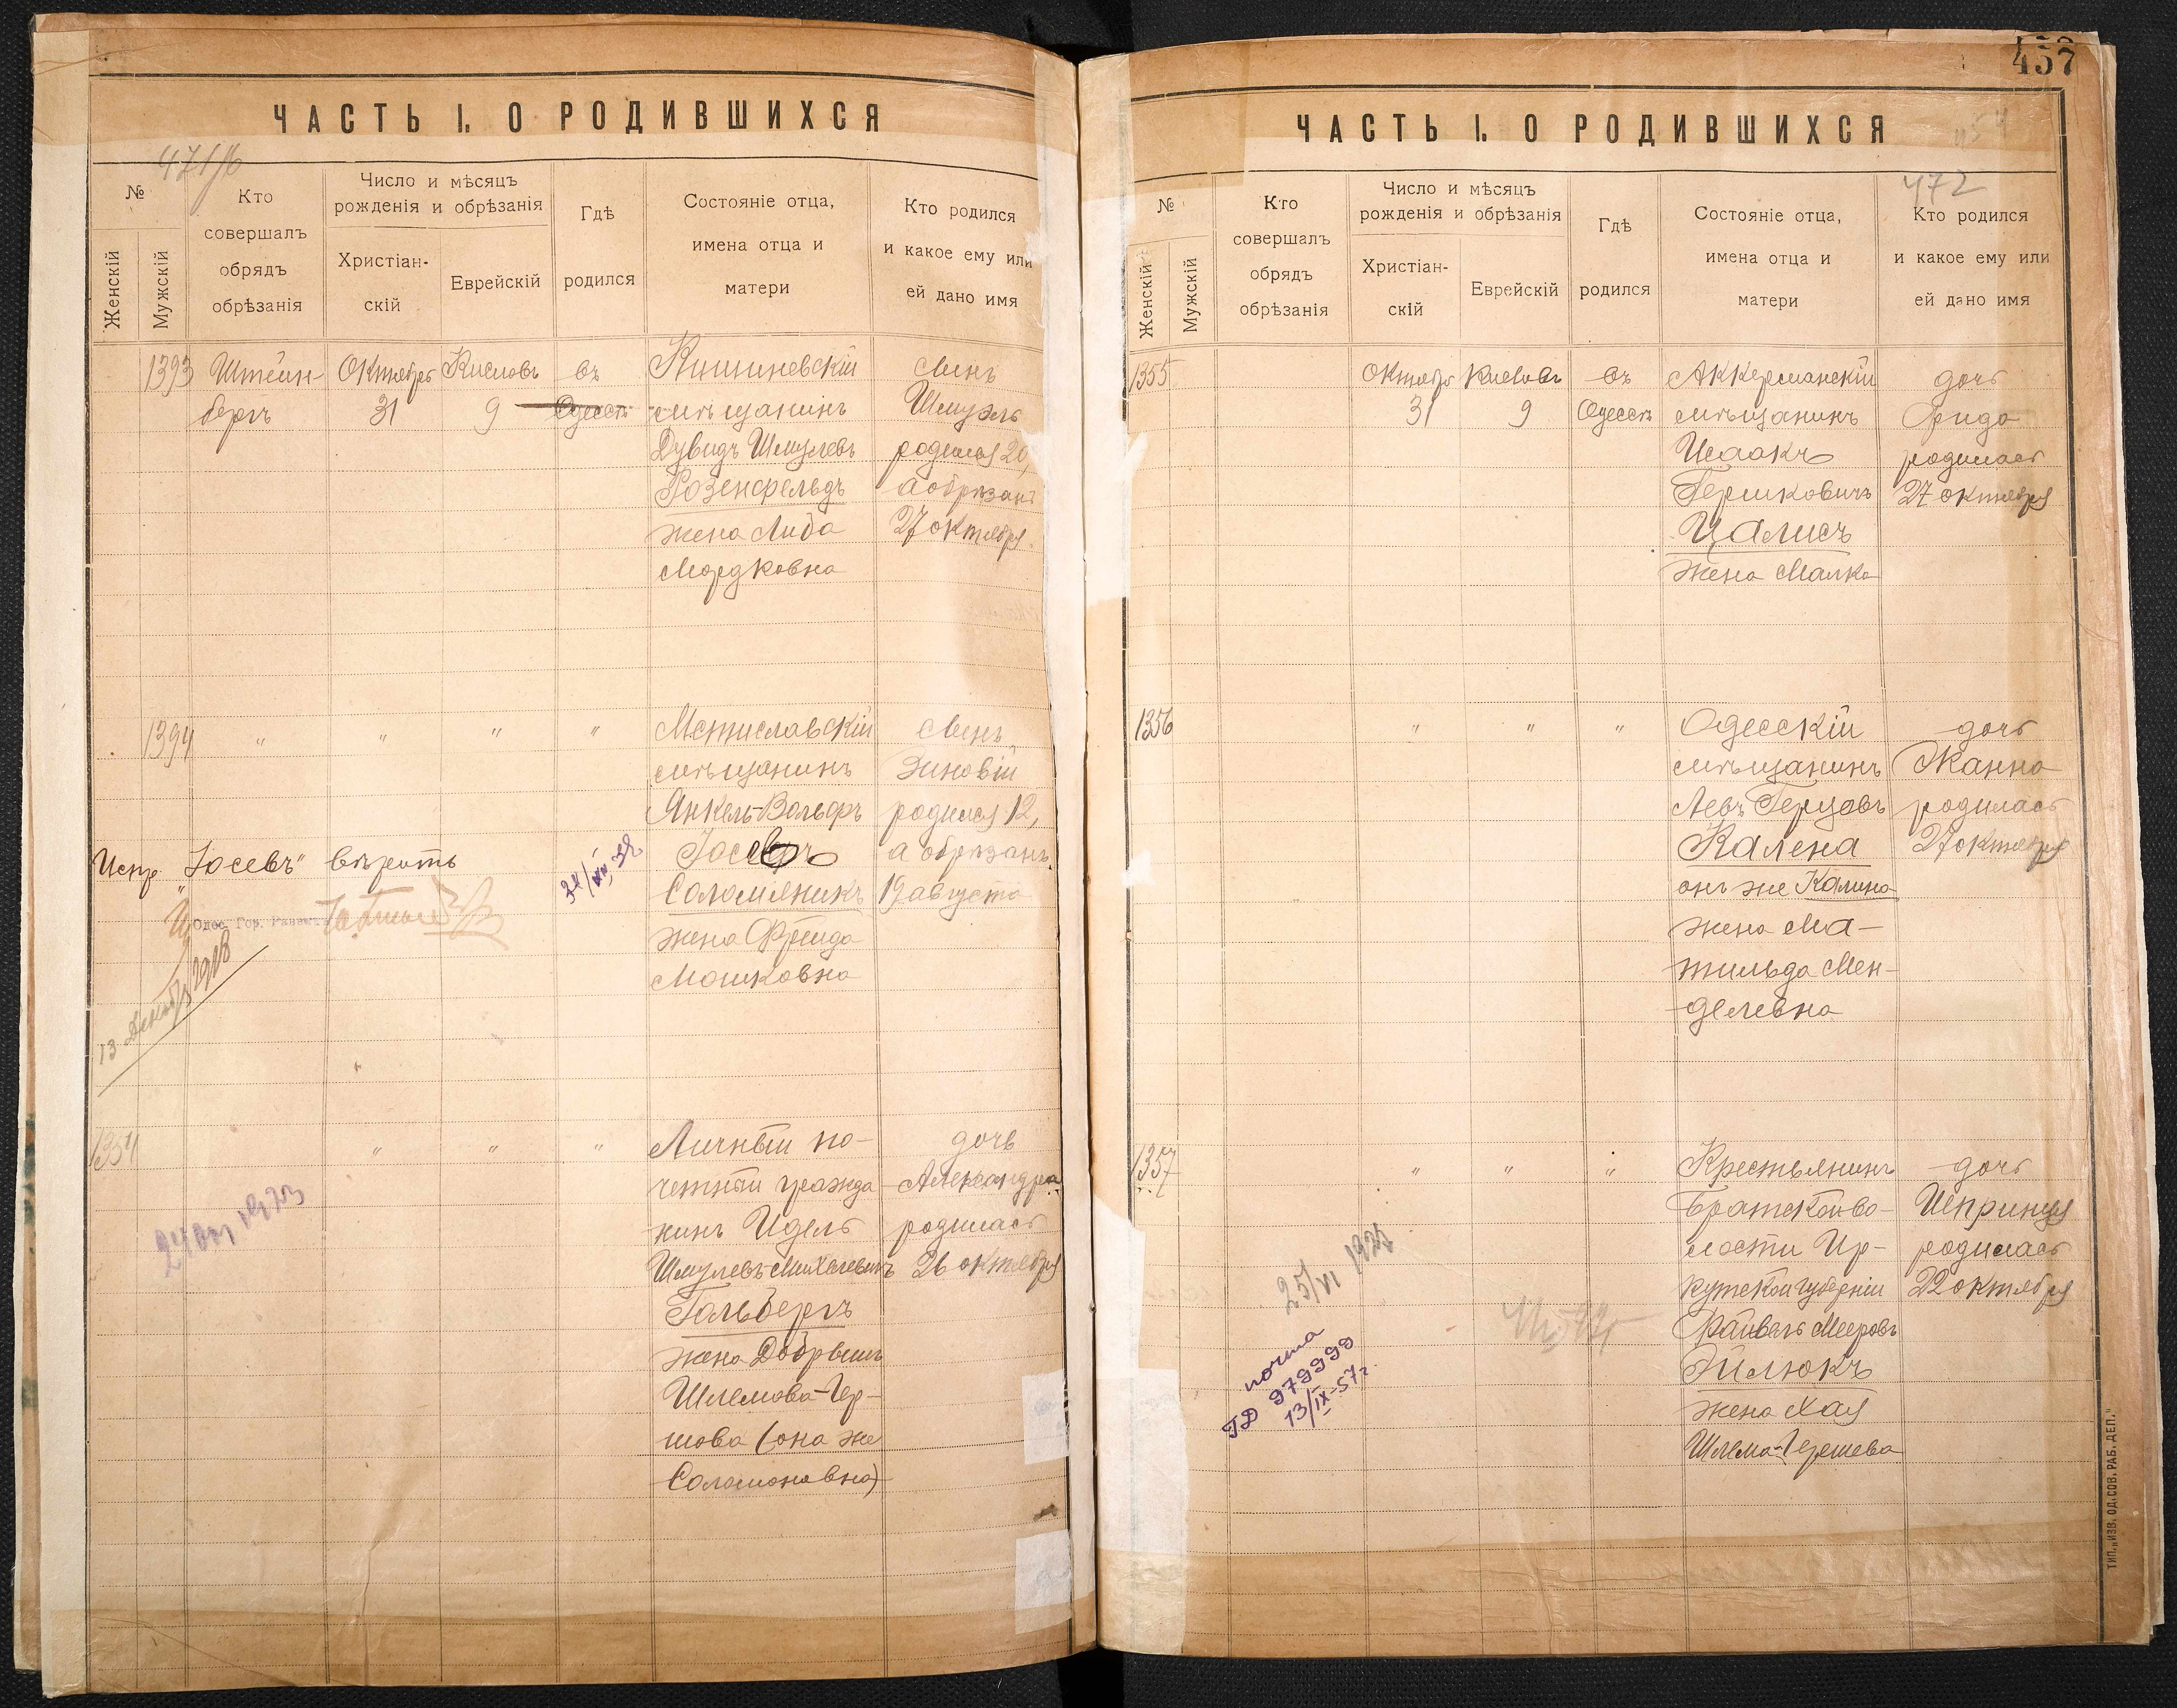 ЧАСТЬ I. О РОДИВШИХСЯ
471/б
№
Женскій
Мужскій
Кто
совершалъ
обрядъ
обрѣзанія
Число и мѣсяцъ
рожденія и обрѣзанія
Христіан-
скій
Еврейскій
Гдѣ
родился
Состояніе отца,
имена отца и
матери
Кто родился
и какое ему или
ей дано имя
1393
Штейн-
бергъ
Октябрь
31
Кислевъ
9
въ
Одессѣ
Кишиневскій
мѣщанинъ
Дувидъ Шмулевъ
Розенфельдъ
жена Либа
Мордковна
сынъ
Шмуэль
родился 20,
а обрѣзанъ
27 октября
1394
"
"
"
"
Мстиславскій
мѣщанинъ
Янкель-Вольфъ
Іосевъ
Соломяникъ
жена Фрейда
Мошковна
сынъ
Зиновій
родился 12,
а обрѣзанъ
19 августа
Испр. "Іосевъ" вѣрить
Одес. Гор. Раввинъ
13 Декабр 1918
1354
"
"
"
Личный по-
четный гражда-
нинъ Идель
Шмулевъ-Михелевичъ
Гольбергъ
жена Добрышъ
Шлемова-Гер-
шова (она же
Соломоновна)
дочь
Александра
родилась
26 октября
457
ЧАСТЬ I. О РОДИВШИХСЯ
472
№
Женскій
Мужскій
Кто
совершалъ
обрядъ
обрѣзанія
Число и мѣсяцъ
рожденія и обрѣзанія
Христіан-
скій
Еврейскій
Гдѣ
родился
Состояніе отца,
имена отца и
матери
Кто родился
и какое ему или
ей дано имя
1355
Октябрь
31
Кислевъ
9
въ
Одессѣ
Аккерманскій
мѣщанинъ
Исаакъ
Гершковичъ
Цалисъ
жена Малка
дочь
Фрида
родилась
27 октября
1356
"
"
"
Одесскій
мѣщанинъ
Левъ Герцовъ
Калена
онъ же Калина
жена Ма-
тильда Мен-
делевна
дочь
Жанна
родилась
27 октября
1357
"
"
"
Крестьянинъ
Братской во-
лости Ир-
кутской губерніи
Файвель Мееровъ
Эйлюкъ
жена Хая
Шлема-Гершева
дочь
родилась
22 октября
25/VI 1927
почта
ГД 979999
13/IX-57г.
ТИП. „ИЗВ. ОД. СОВ. РАБ. ДЕП."